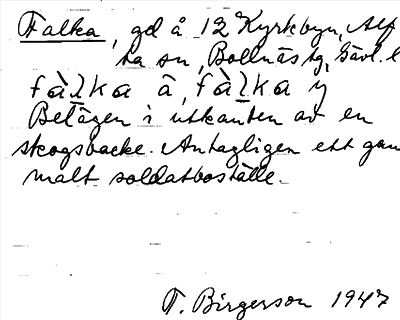 Falka, gd å 12 Kyrkbyn, Alf
ta sn, Bollnäs tg, Gävl. l
fàlka â, fàlka y
Belägen i utkanten av en
skogsbacke. Antagligen ett gam
malt soldatboställe.
T. Birgerson 1947